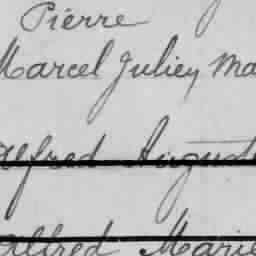 Pierre
Marcel Julien Ma
Alfred August
Alfred Marie